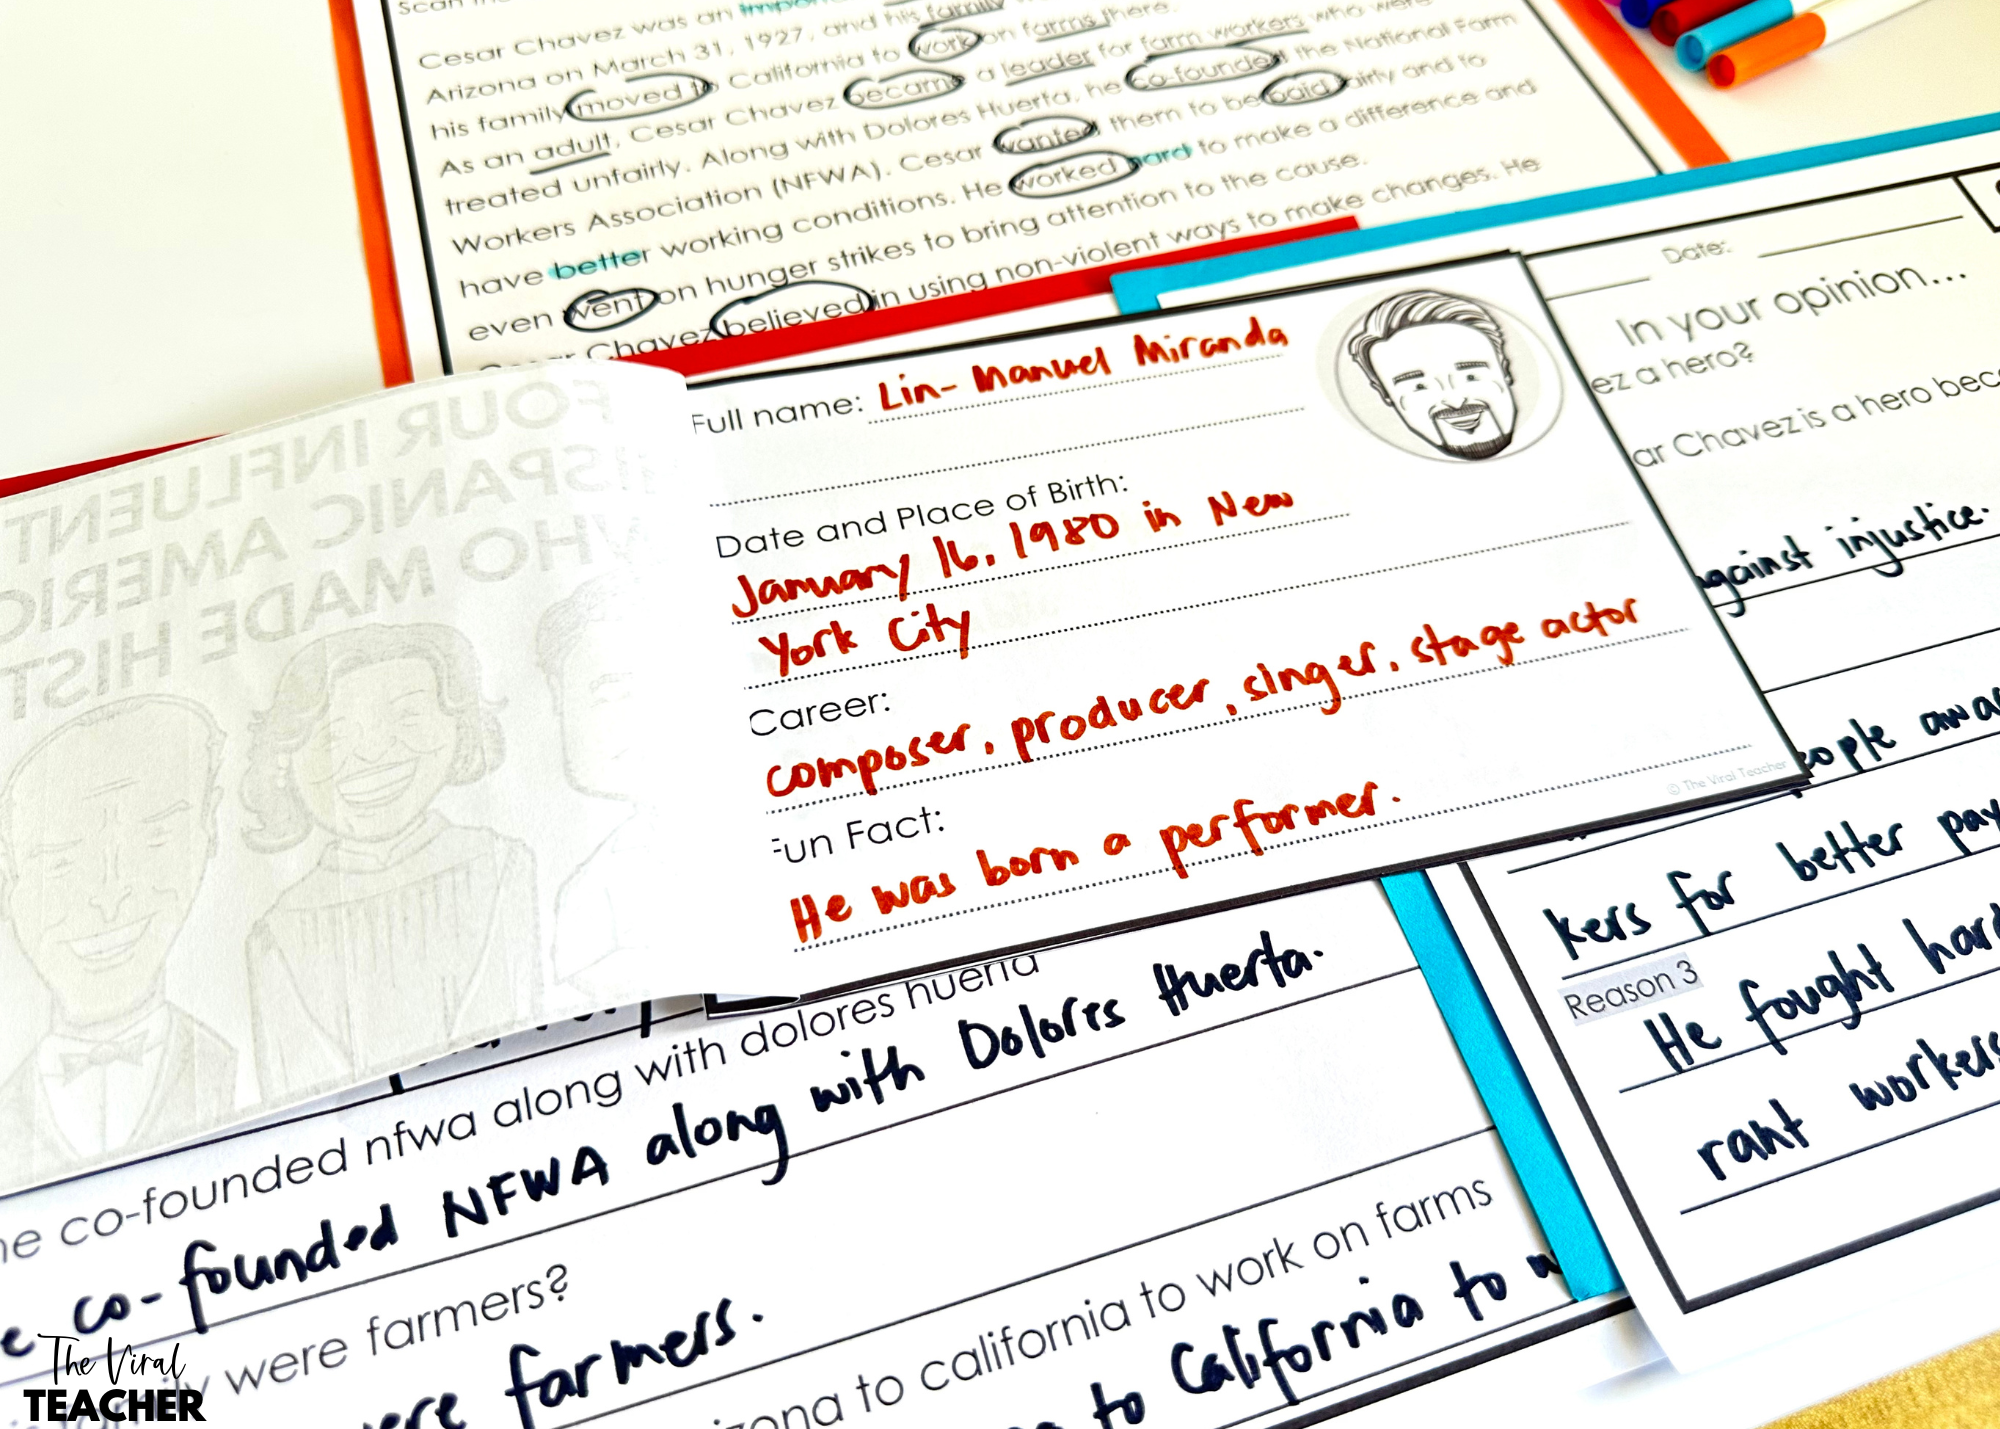 Scan the
Cesar Chavez was an important
Arizona on March 31, 1927, and his family
his family moved to California to work on farms there.
As an adult, Cesar Chavez became a leader for farm workers who were
treated unfairly. Along with Dolores Huerta, he co-founded the National Farm
Workers Association (NFWA). Cesar wanted them to be paid fairly and to
have better working conditions. He worked hard to make a difference and
even went on hunger strikes to bring attention to the cause.
Chavez believed in using non-violent ways to make changes. He
FOUR INFLUENT
SPANIC AMERIC
WHO MADE HIST
Full name: Lin-Manuel Miranda
Date and Place of Birth:
January 16, 1980 in New
York City
Career:
composer, producer, singer, stage actor
Fun Fact:
He was born a performer.
© The Viral Teacher
Date:
In your opinion...
ez a hero?
ar Chavez is a hero bec
against injustice.
ople awa
kers for better pay
Reason 3
He fought hard
rant workers
he co-founded nfwa along with dolores huerta
e co-founded NFWA along with Dolores Huerta.
family were farmers?
ere farmers.
izona to california to work on farms
to California to w
The Viral
TEACHER